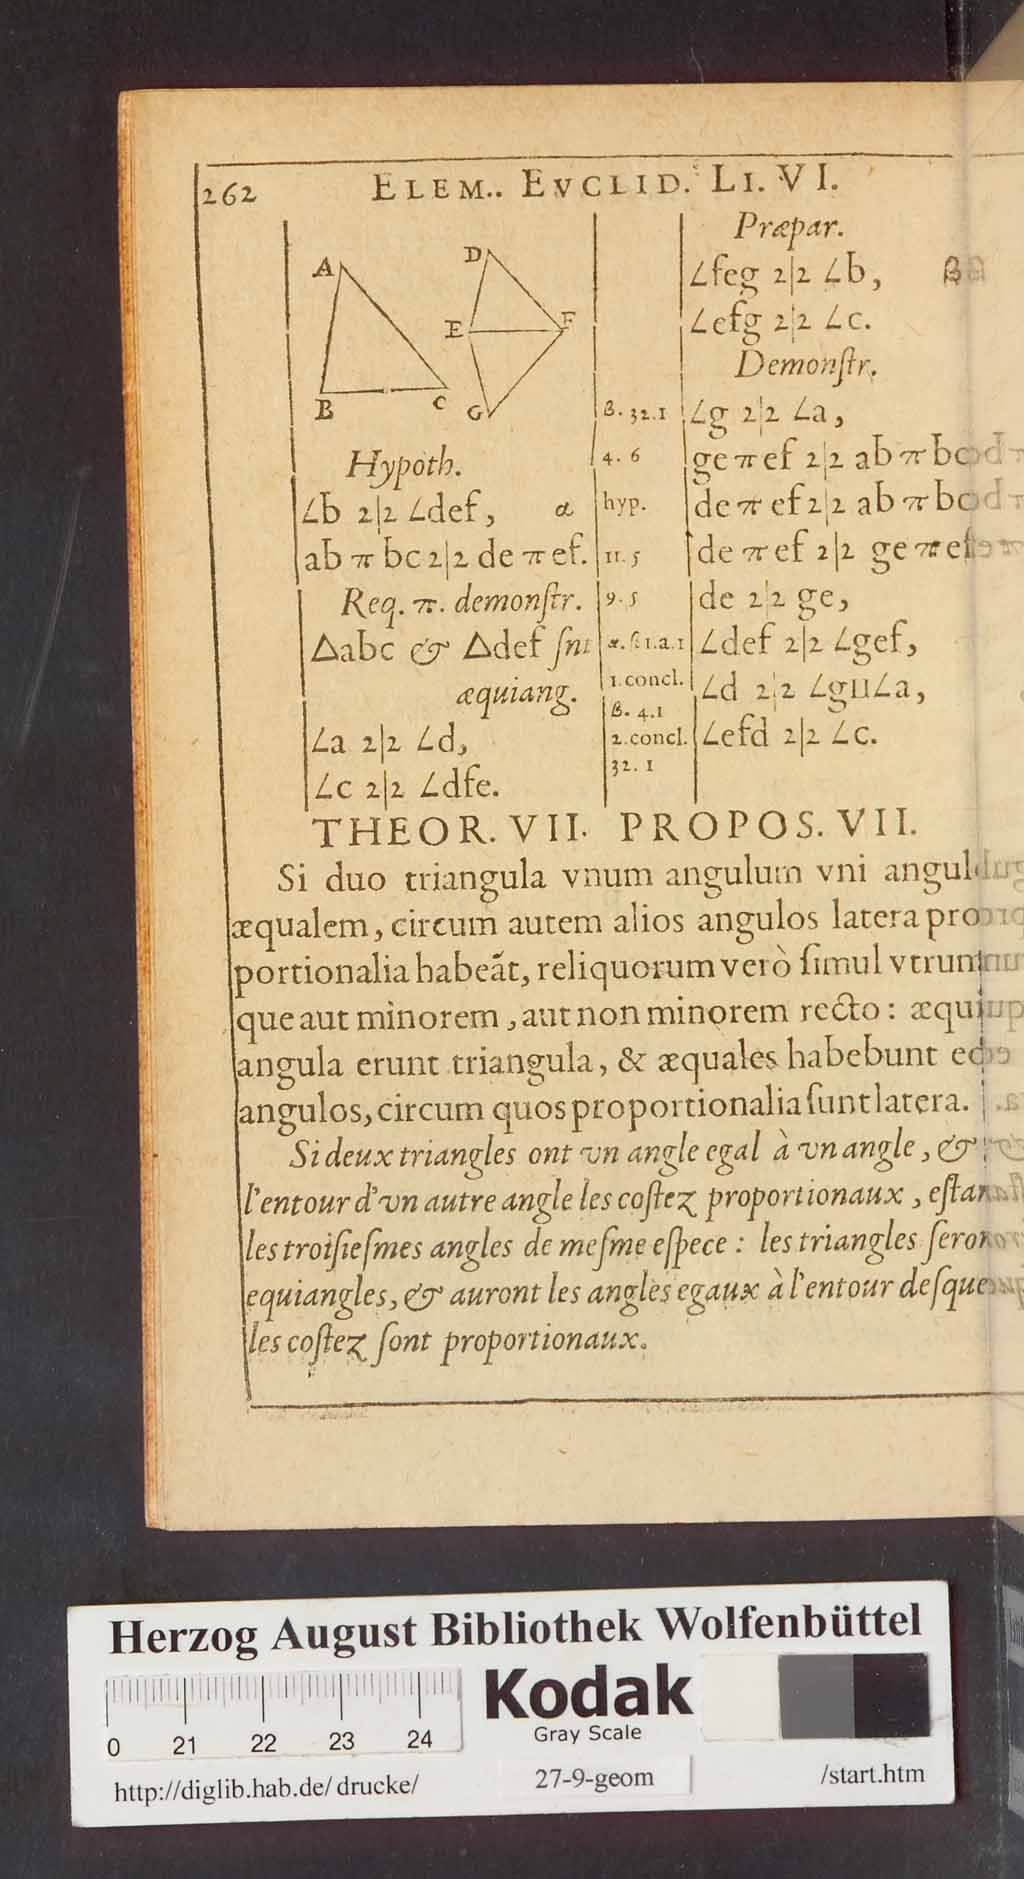 262 ELEM.. EVCLID. LI. VI.
A
B
C
D
E
F
G
Hypoth.
∠b 2|2 ∠def, α
ab π bc 2|2 de π ef.
Req. π. demonſtr.
△abc & △def ſnt
æquiang.
∠a 2|2 ∠d,
∠c 2|2 ∠dfe.
Præpar.
∠feg 2|2 ∠b, β
∠efg 2|2 ∠c.
Demonſtr.
β. 32.1 ∠g 2|2 ∠a,
4. 6 ge π ef 2|2 ab π bc
hyp. de π ef 2|2 ab π bc
11. 5 de π ef 2|2 ge π ef
9. 5 de 2|2 ge,
α. β. 1.a.1 ∠def 2|2 ∠gef,
1.concl. ∠d 2|2 ∠gII∠a,
β. 4.1
2.concl. ∠efd 2|2 ∠c.
32. 1
THEOR. VII. PROPOS. VII.
Si duo triangula vnum angulum vni angul
æqualem, circum autem alios angulos latera pro
portionalia habeãt, reliquorum verò ſimul vtrum
que aut minorem, aut non minorem recto: æqui
angula erunt triangula, & æquales habebunt eo
angulos, circum quos proportionalia ſunt latera.
Si deux triangles ont vn angle egal à vn angle, &
l'entour d'vn autre angle les coſtez proportionaux, eſtan
les troiſieſmes angles de meſme eſpece: les triangles ſeron
equiangles, & auront les angles egaux à l'entour deſque
les coſtez ſont proportionaux.
Herzog August Bibliothek Wolfenbüttel
Kodak
Gray Scale
0 21 22 23 24
http://diglib.hab.de/drucke/ 27-9-geom /start.htm